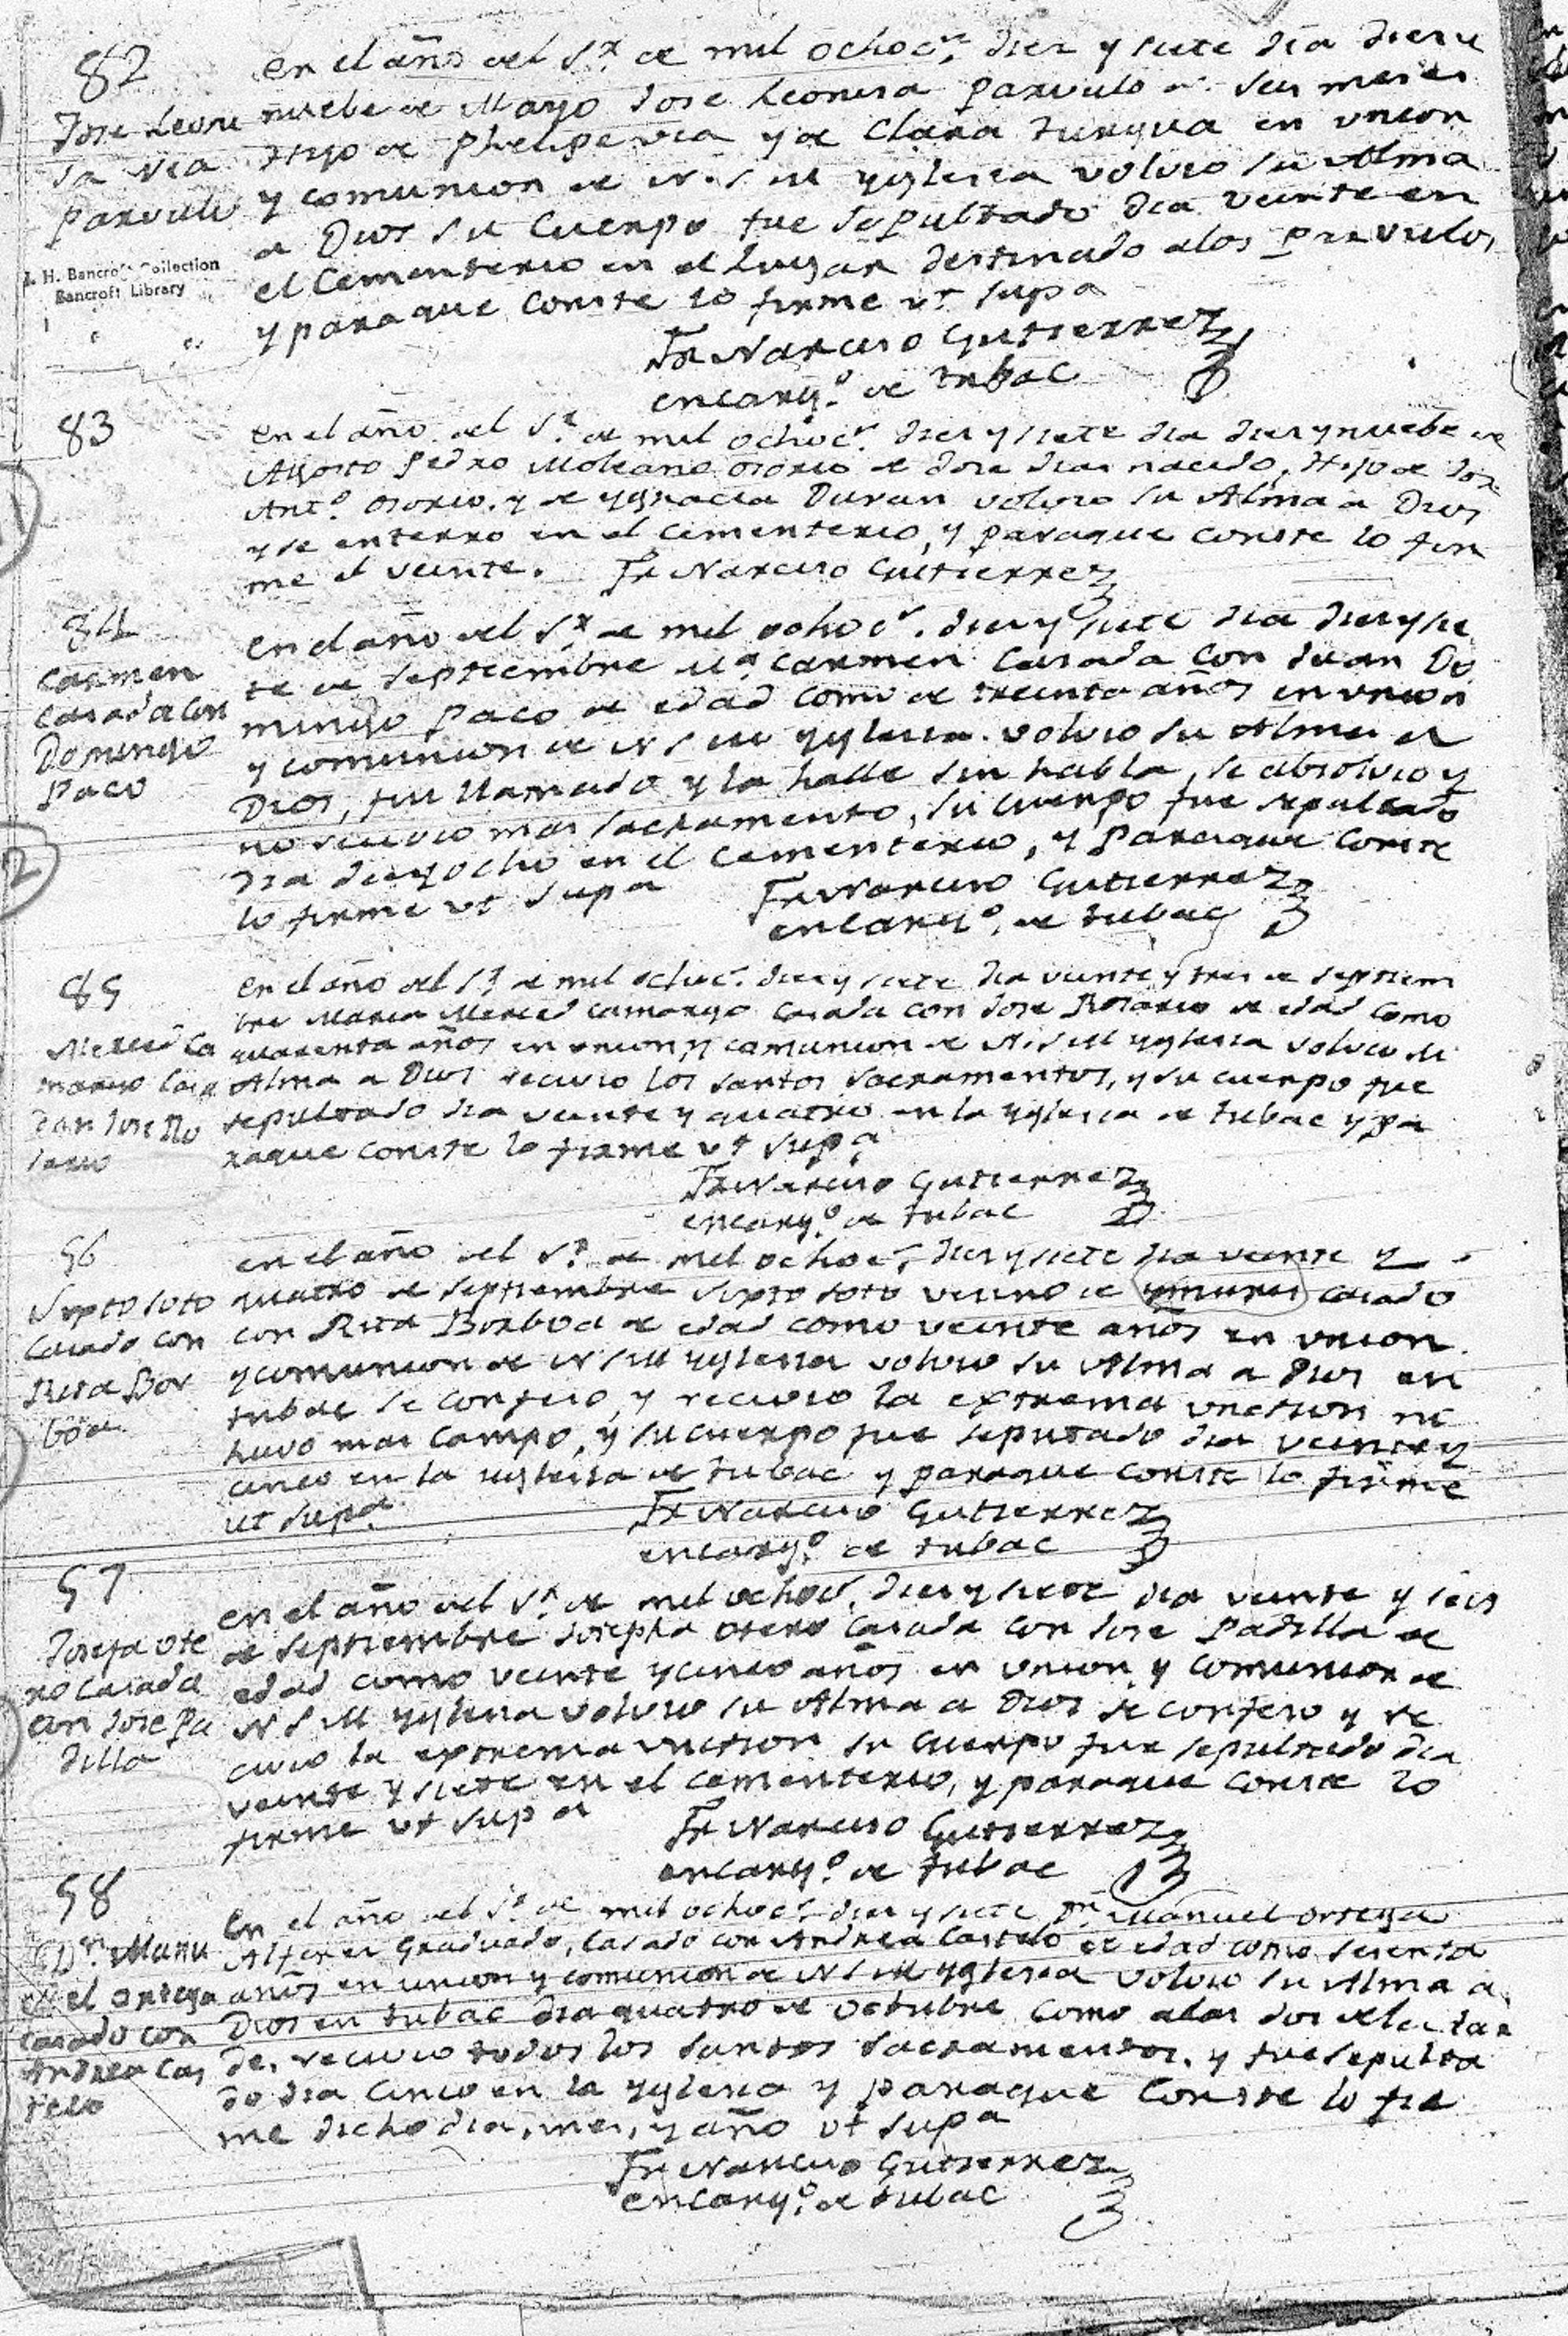 82
Jose Leoni
sa Vea
parvulo
H. H. Bancroft Collection
Bancroft Library
en el año del Sr. de mil ochocs. diez y siete dia diez y
nuebe de Mayo Jose Leonisa parvulo de seis meses
Hijo de Phelipe vea y de Clara Zuñiga en union
y comunion de N. S. M. yglesia volvio su Alma
a Dios su Cuerpo fue sepultado dia veinte en
el Cementerio en el Lugar destinado a los parvulos
y paraque conste lo firme ut supa
Fr Narciso Gutierrez
encargo. de tubac
83
en el año del Sr. de mil ochocs. diez y siete dia diez y nuebe de
Agosto Pedro Moleano osorio de dose dias nacido, Hijo de Jose
Anto. osorio. y de ygnacia Duran volvio su Alma a Dios
y se enterro en el Cementerio, y paraque conste lo fir
me el veinte. Fr Narciso Gutierrez
84
Carmen
Casada con
Domingo
Paco
en el año del Sr. de mil ochocs. diez y siete dia diez y sie
te de septiembre Ma. Carmen Casada con Juan Do
mingo Paco de edad como de treinta años en union
y comunion de N S M yglesia. volvio su Alma a
Dios, fui llamado y la halle sin habla, se absolvio y
no recivio mas sacramento, su cuerpo fue sepultado
dia diez y ocho en el Cementerio, y paraque conste
lo firme ut supa
Fr Narciso Gutierrez
encargo. de tubac
85
Merced Ca
margo Casa
da con Jose Ro
sario
en el año del Sr. de mil ochocs. diez y siete dia veinte y tres de septiem
bre Maria Merced Camargo Casada con Jose Rosario de edad como
quarenta años en union y comunion de N. S. M yglesia volvio su
Alma a Dios recivio los santos sacramentos, y su cuerpo fue
sepultado dia veinte y quatro en la yglesia de tubac y pa
raque conste lo firme ut supa
Fr Narciso Gutierrez
encargo. de tubac
56
Sixto soto
Casado con
Rita Bor
boa
en el año del Sr. de mil ochocs. diez y siete dia veinte y
quatro de septiembre sixto soto vecino de ymuris casado
con Rita Borboa de edad como veinte años en union
y comunion de N S M yglesia volvio su Alma a Dios en
tubac se confeso, y recivio la extrema uncion no
huvo mas campo, y su cuerpo fue seputado dia veinte y
cinco en la yglesia de tubac y paraque conste lo firme
ut supa.
Fr Narciso Gutierrez
encargo. de tubac
57
Josefa ote
ro Casada
con Jose Pa
dilla
en el año del Sr. de mil ochocs. diez y siete dia veinte y seis
de septiembre Josepha otero Casada con Jose Padilla de
edad como veinte y cinco años en union y comunion de
N S M yglesia volvio su Alma a Dios se confeso y re
civio la extrema uncion su cuerpo fue sepultado dia
veinte y siete en el cementerio, y paraque conste lo
firme ut supa
Fr Narciso Gutierrez
encargo. de tubac
58
Dn. Manu
el ortega
casado con
Andrea Cas
telo
En el año del Sr. de mil ochocs. diez y siete Dn. Manuel ortega
Alferes Graduado, Casado con Andrea Castelo de edad como sesenta
años en union y comunion de N S M yglesia volvio su Alma a
Dios en tubac dia quatro de octubre como a las dos de la tar
de, recivio todos los santos sacramentos, y fue sepulta
do dia cinco en la yglesia y paraque conste lo fir
me dicho dia, mes, y año ut supa
Fr Narciso Gutierrez
encargo. de tubac